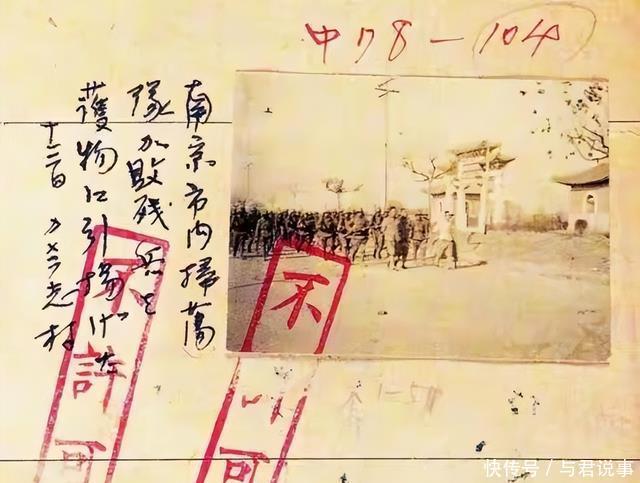 中78-104
南京市内掃蕩
隊が敗残兵と
獲物 引揚げ
志村
不許可
不許可
快传号 / 与君说事